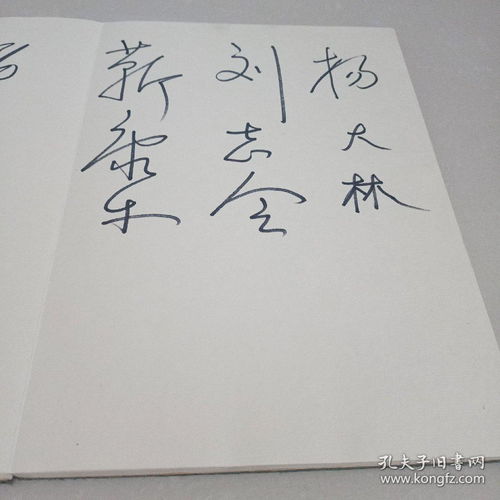 杨大林
刘志全
靳
孔夫子旧书网
www.kongfz.com